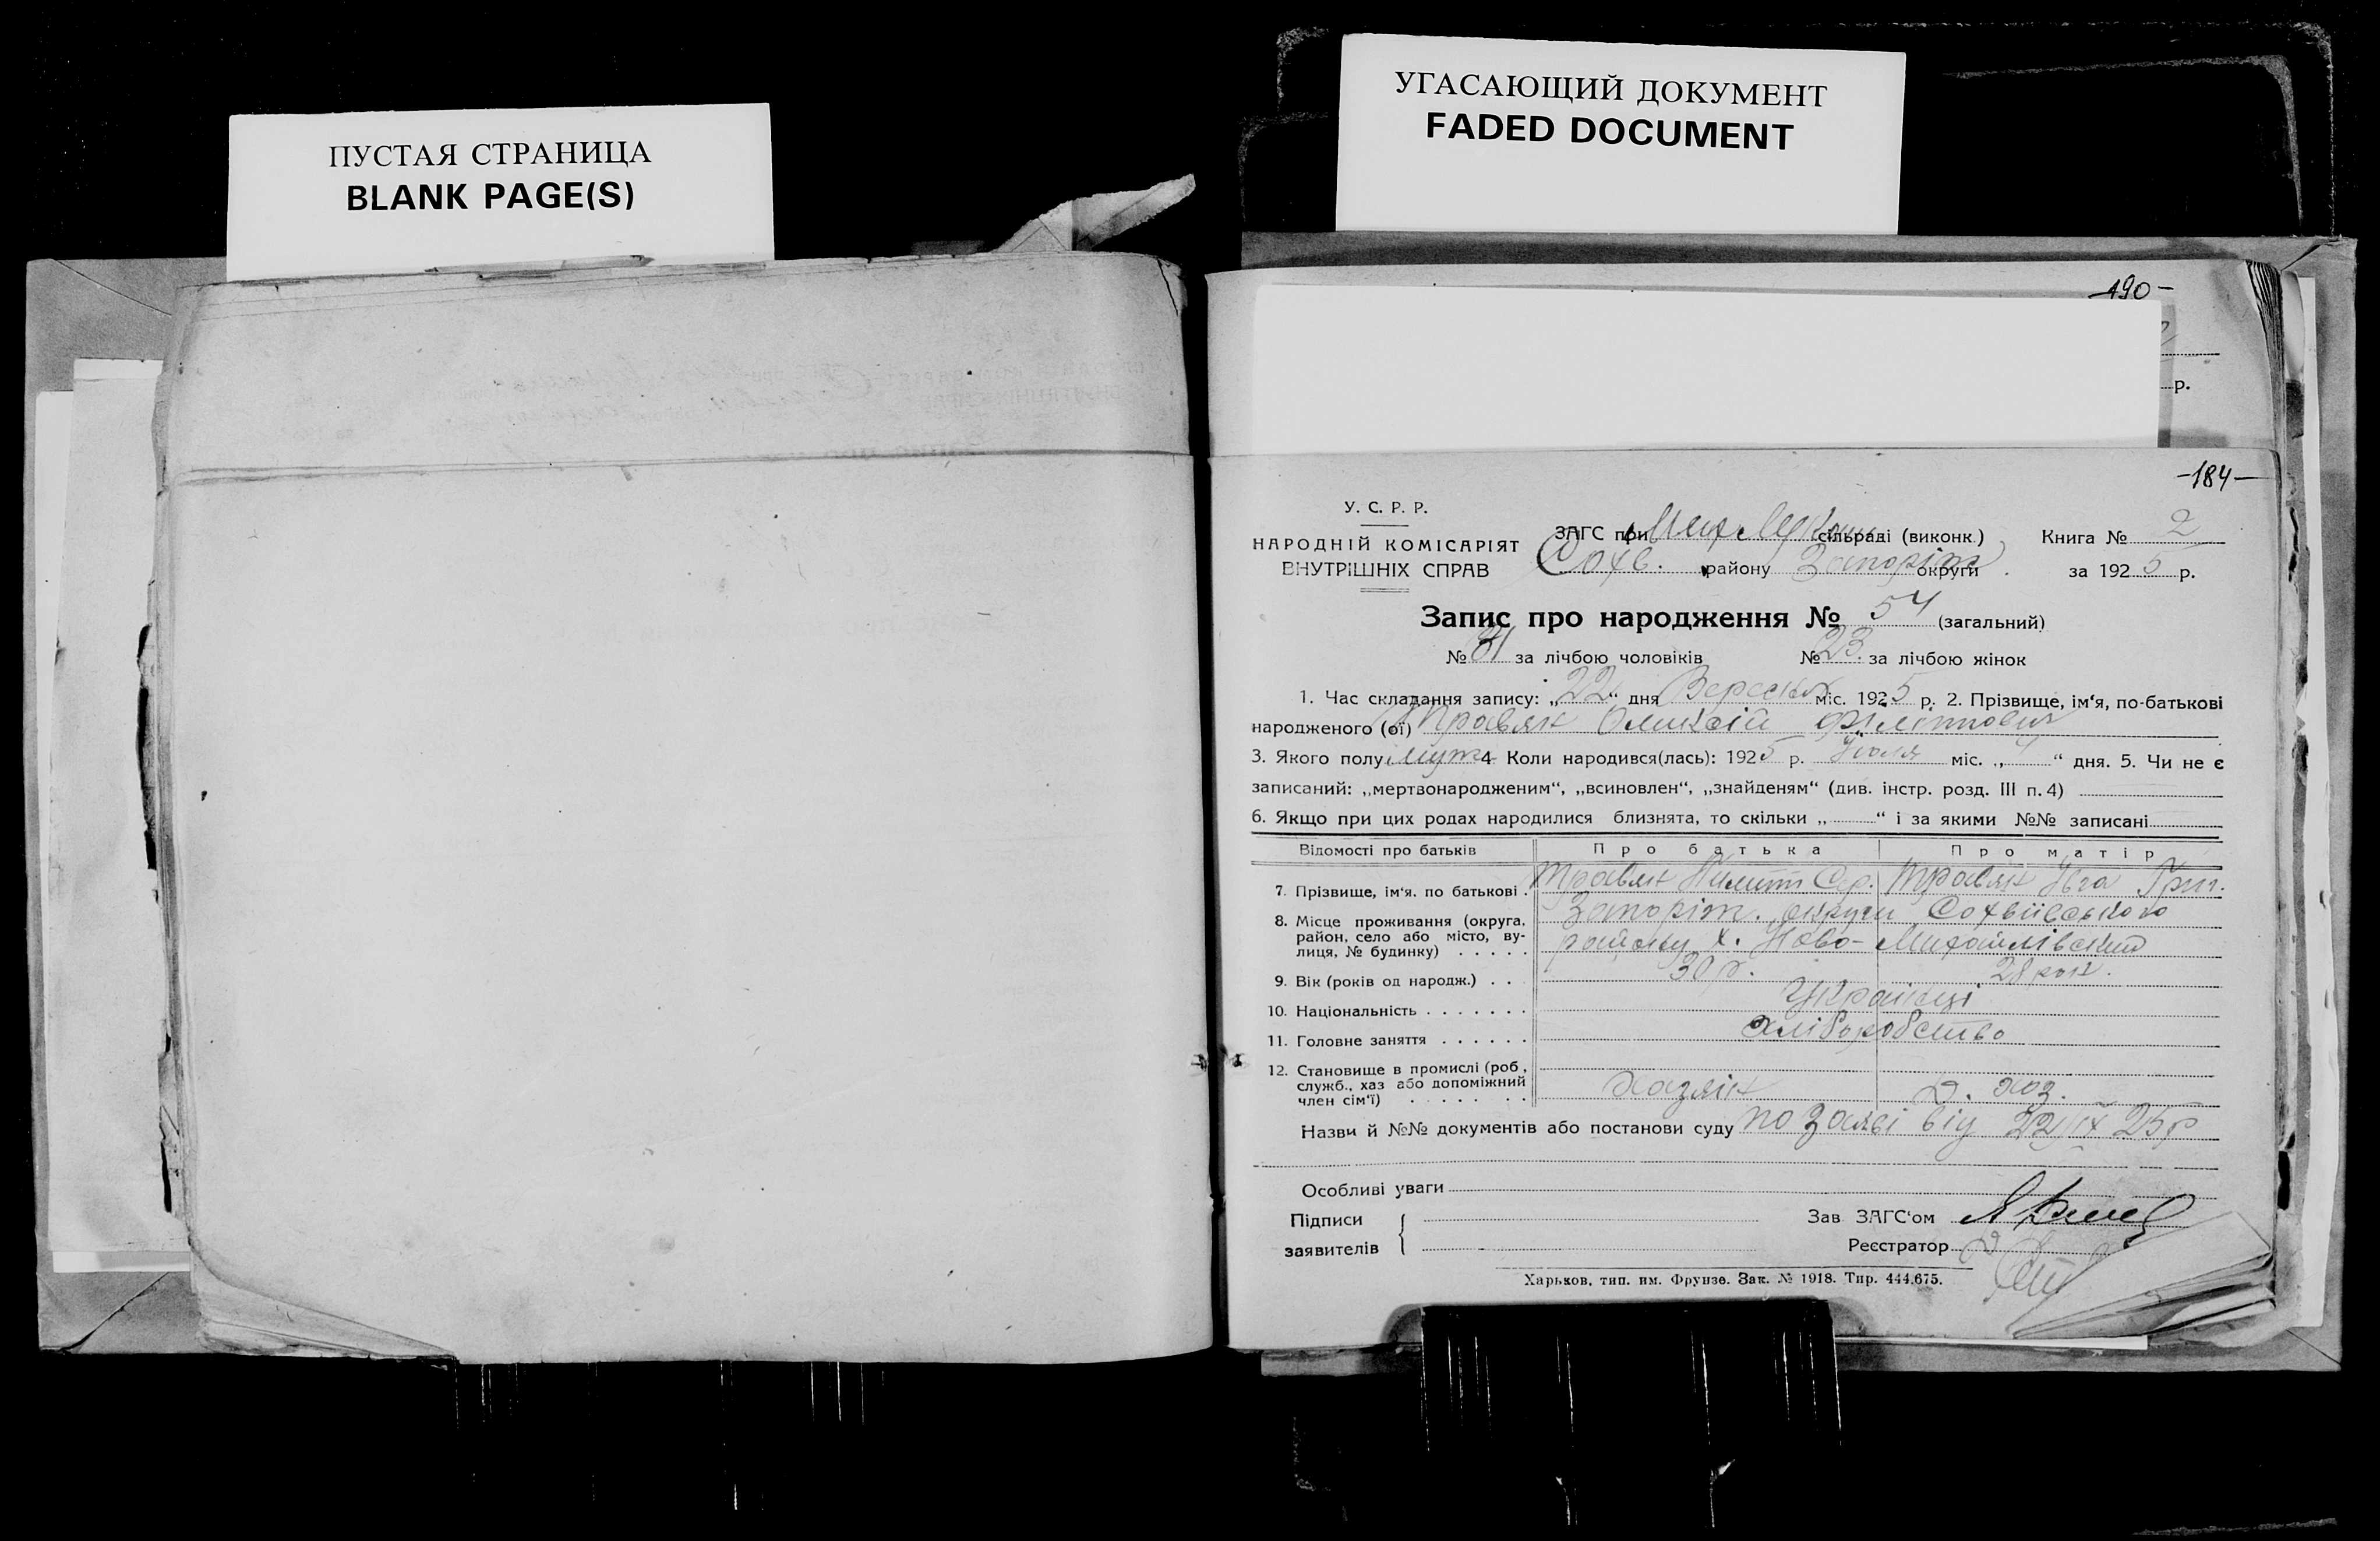 ПУСТАЯ СТРАНИЦА
BLANK PAGE(S)
УГАСАЮЩИЙ ДОКУМЕНТ
FADED DOCUMENT
-190-
р.
-184-
У. С. Р. Р.
НАРОДНІЙ КОМІСАРІЯТ
ВНУТРІШНІХ СПРАВ
ЗАГС при сільраді (виконк.)
Софв. району Запоріж округи
Книга № 2
за 1925 р.
Запис про народження № 54 (загальний)
№ 31 за лічбою чоловіків № 23. за лічбою жінок
1. Час складання запису: „22“ дня Вересня міс. 1925 р. 2. Прізвище, ім‘я, по-батькові
народженого (ої) Травян Оликсій Філіппович
3. Якого полу муж 4 Коли народився(лась): 1925 р. Июля міс. „4“ дня. 5. Чи не є
записаний: „мертвонародженим“, „всиновлен“, „знайденям“ (див. інстр. розд. III п. 4)
6. Якщо при цих родах народилися близнята, то скільки „ “ і за якими №№ записані
Відомості про батьків Про батька Про матір
7. Прізвище, ім‘я. по батькові . Травян Пилип Сер. Травян Ївга Григ.
8. Місце проживання (округа, район, село або місто, вулиця, № будинку) Запоріж. округи Софвіівського
району х. Ново-Михайлівский
9. Вік (років од народж.) 30 р. 28 рок.
10. Національність Українці
11. Головне заняття хліборобство
12. Становище в промислі (роб, служб., хаз або допоміжний член сім‘ї) хазяін Д. хаз.
Назви й №№ документів або постанови суду по заяві від 22/IX 25р
Особливі уваги
Підписи
заявителів
Зав ЗАГС‘ом
Реєстратор
Харьков, тип. им. Фрунзе. Зак. № 1918. Тир. 444.675.